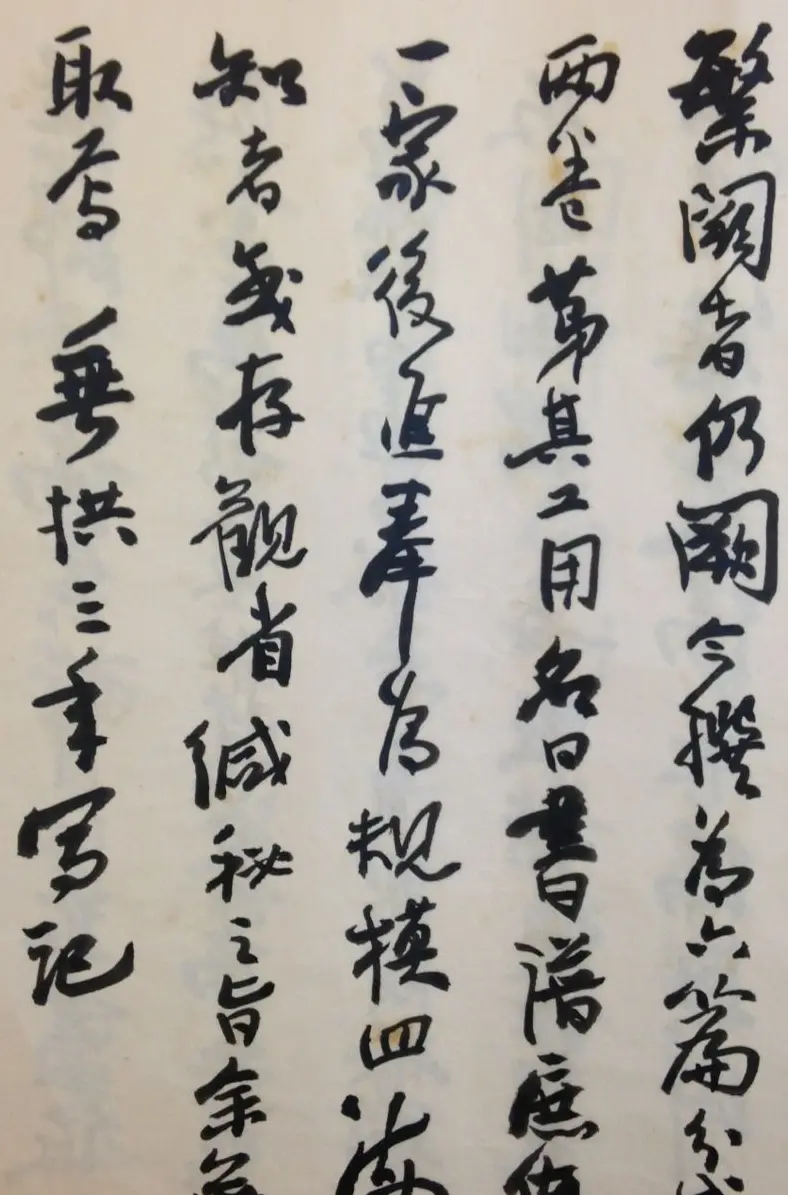 繁闕者仍闕今撰為六篇分成
兩卷第其工用名曰書譜庶使
一家後進奉為規模四海
知者或存觀省緘秘之旨余無
取焉垂拱三年寫記